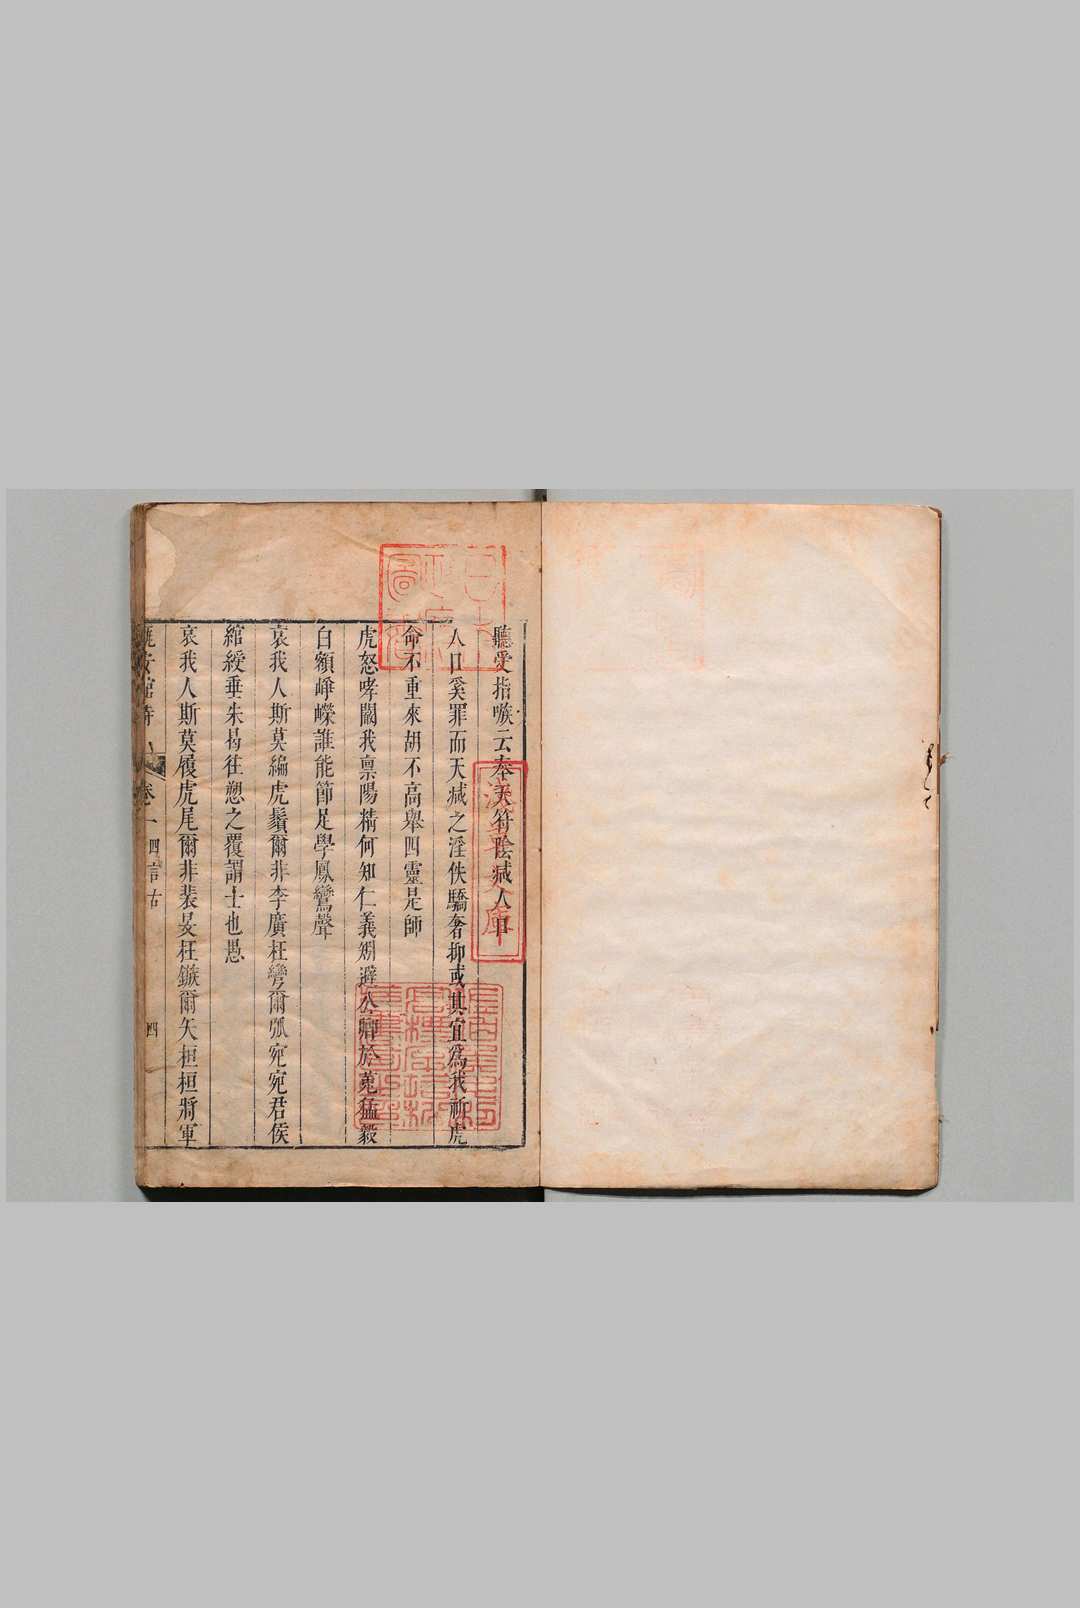 聽受指嗾云奉天符陰減人口
人口奚罪而天減之淫佚驕奢抑或其宜爲我祈虎
命不重來胡不高舉四靈是師
虎怒哮闞我禀陽精何知仁義矧避公卿於菟猛毅
白額崢嶸誰能節足學鳳鸞聲
哀我人斯莫編虎鬚爾非李廣枉彎爾弧宛宛君侯
綰綬垂朱曷往愬之覆謂士也愚
哀我人斯莫履虎尾爾非裴旻枉鏃爾矢桓桓將軍
安館詩 卷一 四言古 四